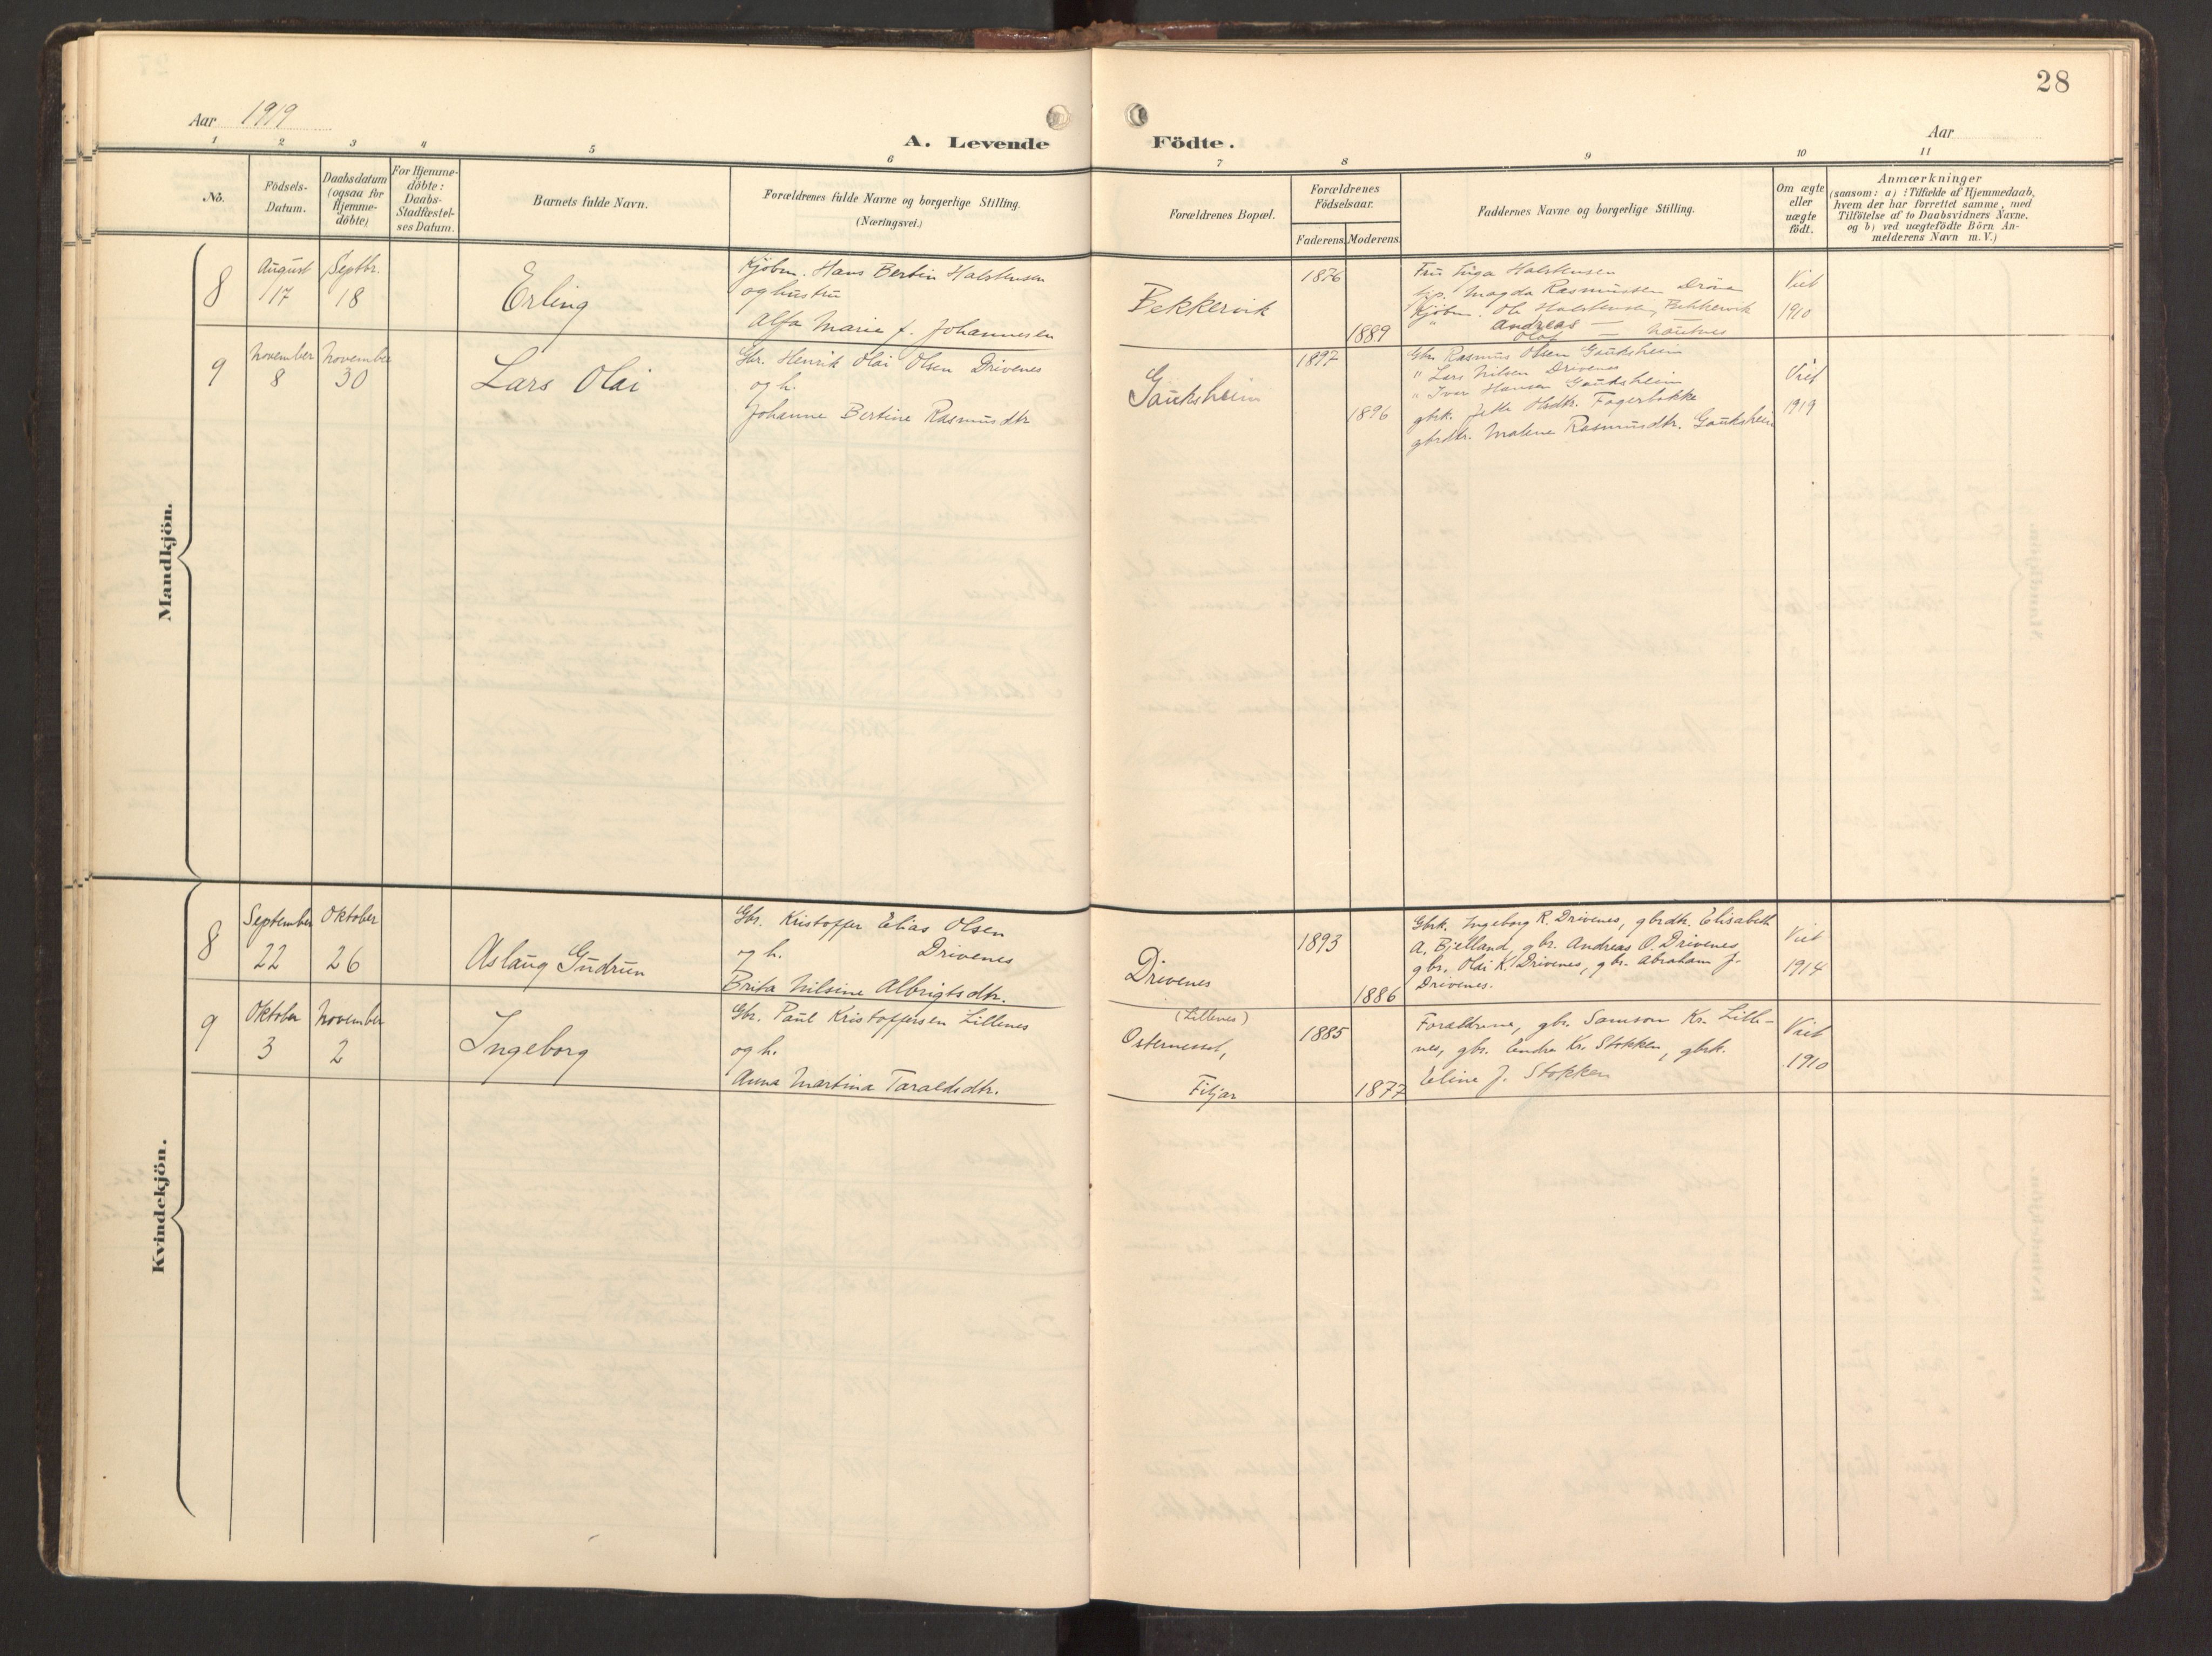 28
Aar 1919
Aar
A. Levende Födte.
1 2 3 4 5 6 7 8 9 10 11
No.
Födsels-
Datum.
Daabsdatum
(ogsaa for
Hjemme-
döbte)
For Hjemme-
döbte:
Daabs-
Stadfæstel-
ses Datum.
Barnets fulde Navn.
Forældrenes fulde Navne og borgerlige Stilling.
(Næringsvei.)
Forældrenes Bopæl.
Forældrenes
Födselsaar.
Faderens. Moderens.
Faddernes Navne og borgerlige Stilling.
Om ægte
eller
uægte
födt.
Anmærkninger
(saasom: a) i Tilfælde af Hjemmedaab,
hvem der har forrettet samme, med
Tilföielse af to Daabsvidners Navne,
og b) ved uægtefödte Börn An-
melderens Navn m. V.)
Mandkjön.
8
August
17
Septbr.
18
Erling
Kjöbm. Hans Bertin Halstensen
og hustru
Alfa Marie f. Johannesen
Bekkervik
1876
1889
Fru Inga Halstensen
Magda Rasmussen Drönen
Kjöbm. Ole Halstensen, Bekkervik
" Andreas —
Olaf —
Viet
1910
9
November
8
November
30
Lars Olai
Gbr. Henrik Olai Olsen Drivenes
og h.
Johanne Bertine Rasmusdtr.
Gauksheim
1897
1896
Gbr. Rasmus Olsen Gauksheim
" Lars Nilsen Drivenes
" Ivar Hansen Gauksheim
gbrk. Jette Olsdtr. Fagerbakke
gbrdtr. Malene Rasmusdtr. Gauksheim
Viet
1919
Kvindekjön.
8
September
22
Oktober
26
Aslaug Gudrun
Gbr. Kristoffer Elias Olsen
og h. Drivenes
Brita Nilsine Albrigtsdtr.
Drivenes
1893
1886
Gbrk. Ingeborg R. Drivenes, gbrdtr. Elisabeth
A. Bjelland, gbr. Andreas O. Drivenes,
gbr. Olai K. Drivenes, gbr. Abraham J.
Drivenes.
Viet
1914
9
Oktober
3
November
2
Ingeborg
Gbr. Paul Kristoffersen Lillenes
og h.
Anna Martina Taraldsdtr.
(Lillenes)
Osternesset,
Fitjar
1885
1877
Forældrene, gbr. Samson Kr. Lille-
nes, gbr. Endre Kr. Stokken, gbrk.
Eline J. Stokken
Viet
1910